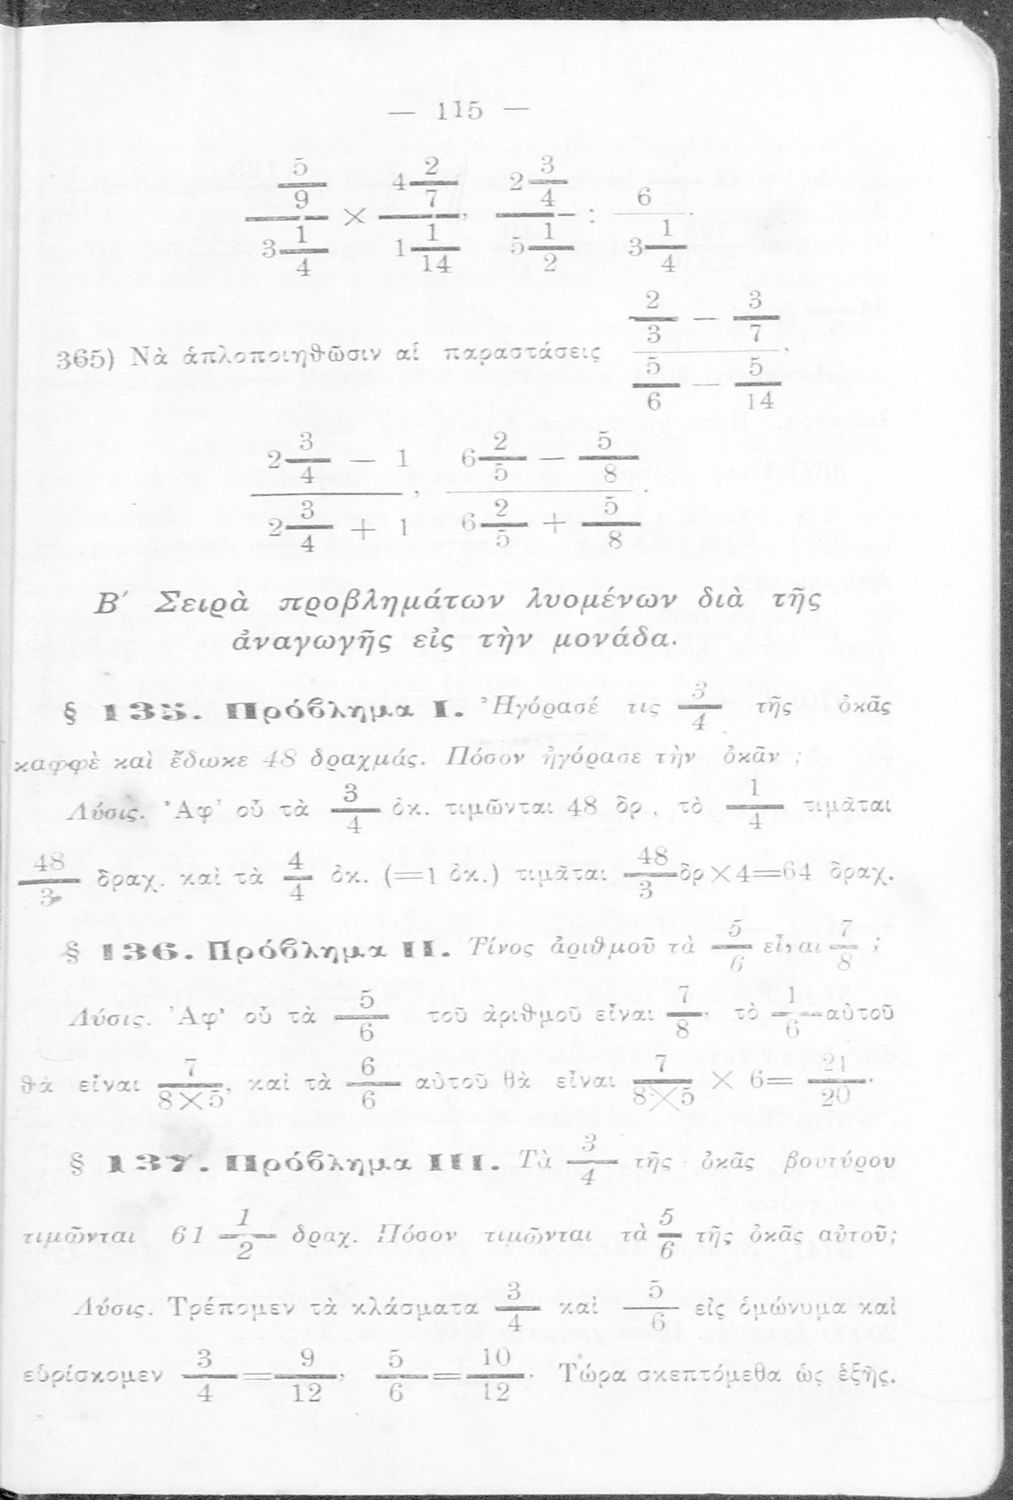 — 115 —
$\frac{\frac{5}{9}}{3\frac{1}{4}} \times \frac{4\frac{2}{7}}{1\frac{1}{14}}$, $\frac{2\frac{3}{4}}{5\frac{1}{2}} : \frac{6}{3\frac{1}{4}}$.
365) Νὰ ἁπλοποιηθῶσιν αἱ παραστάσεις $\frac{\frac{2}{3} - \frac{3}{7}}{\frac{5}{6} - \frac{5}{14}}$,
$\frac{2\frac{3}{4} - 1}{2\frac{3}{4} + 1}$, $\frac{6\frac{2}{5} - \frac{5}{8}}{6\frac{2}{5} + \frac{5}{8}}$.
Β′ Σειρὰ προβλημάτων λυομένων διὰ τῆς
ἀναγωγῆς εἰς τὴν μονάδα.
§ 135. Πρόβλημα I. Ἠγόρασέ τις $\frac{3}{4}$ τῆς ὀκᾶς
καφφὲ καὶ ἔδωκε 48 δραχμάς. Πόσον ἠγόρασε τὴν ὀκᾶν ;
Λύσις. Ἀφ' οὗ τὰ $\frac{3}{4}$ ὀκ. τιμῶνται 48 δρ , τὸ $\frac{1}{4}$ τιμᾶται
$\frac{48}{3}$ δραχ. καὶ τὰ $\frac{4}{4}$ ὀκ. (=1 ὀκ.) τιμᾶται $\frac{48}{3}$ δρ×4=64 δραχ.
§ 136. Πρόβλημα II. Τίνος ἀριθμοῦ τὰ $\frac{5}{6}$ εἶναι $\frac{7}{8}$ ;
Λύσις. Ἀφ' οὗ τὰ $\frac{5}{6}$ τοῦ ἀριθμοῦ εἶναι $\frac{7}{8}$, τὸ $\frac{1}{6}$ αὐτοῦ
θὰ εἶναι $\frac{7}{8×5}$, καὶ τὰ $\frac{6}{6}$ αὐτοῦ θὰ εἶναι $\frac{7}{8×5}$ × 6= $\frac{21}{20}$.
§ 137. Πρόβλημα III. Τὰ $\frac{3}{4}$ τῆς ὀκᾶς βουτύρου
τιμῶνται 61 $\frac{1}{2}$ δραχ. Πόσον τιμῶνται τὰ $\frac{5}{6}$ τῆς ὀκᾶς αὐτοῦ;
Λύσις. Τρέπομεν τὰ κλάσματα $\frac{3}{4}$ καὶ $\frac{5}{6}$ εἰς ὁμώνυμα καὶ
εὑρίσκομεν $\frac{3}{4}$=$\frac{9}{12}$, $\frac{5}{6}$=$\frac{10}{12}$. Τώρα σκεπτόμεθα ὡς ἑξῆς.